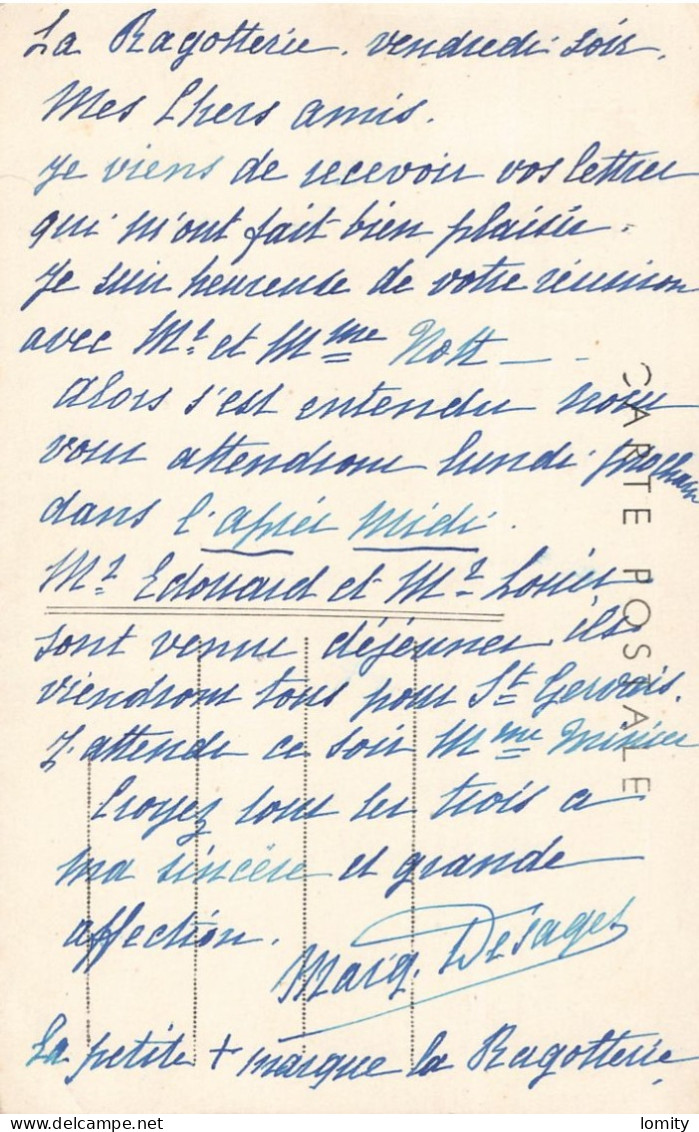 La Ragotterie. vendredi soir.
Mes Chers amis.
Je viens de recevoir vos lettres
qui m'ont fait bien plaisir.
Je suis heureuse de votre réunion
avec Mr et Mme Nott - -
Alors s'est entendu nous
vous attendrons lundi prochain
dans l'après Midi.
Mr Edouard et Mr Louis
sont venu déjeuner ils
viendrons tous pour St Gervais.
J'attends ce soir Mme
Croyez tous les trois a
ma sincère et grande
affection.
Marg. Desages
La petite + marque la Ragotterie
CARTE POSTALE
lomity